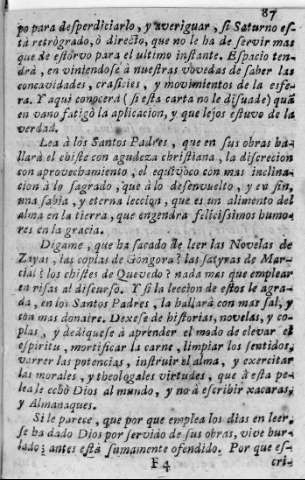 87
po para desperdiciarlo, y averiguar, si Saturno es-
tà retrògrado, ò directo, que no le ha de servir mas
que de estorvo para el ultimo instante. Espacio ten-
drà, en viniendose à nuestras vovedas de saber las
concavidades, crasicies, y movimientos de la esfe-
ra. Y aqui conocerà (si esta carta no le disuade) quã
en vano fatigò la aplicacion, y que lejos estuvo de la
verdad.
Lea à los Santos Padres, que en sus obras ha-
llarà el chiste con agudeza christiana, la discrecion
con aprovechamiento, el equivoco con mas inclina-
cion à lo sagrado, que à lo desenvuelto, y en fin,
una sabia, y eterna leccion, que es un alimento del
alma en la tierra, que engendra felicissimos humo-
res en la gracia.
Digame, que ha sacado de leer las Novelas de
Zayas, las coplas de Gongora? las satyras de Mar-
cial? los chistes de Quevedo? nada mas que emplear
en risas al discurso. Y si la leccion de estos le agra-
da, en los Santos Padres, la hallarà con mas sal, y
con mas donaire. Dexese de historias, novelas, y co-
plas, y dediquese à aprender el modo de elevar el
espiritu, mortificar la carne, limpiar los sentidos,
varrer las potencias, instruir el alma, y exercitar
las morales, y theologales virtudes, que à esta pe-
lea le echò Dios al mundo, y no à escribir xacaras,
y Almanaques.
Si le parece, que por que emplea los dias en leer,
se ha dado Dios por servido de sus obras, vive bur-
lado; antes està sumamente ofendido. Por que es-
F 4
cri-